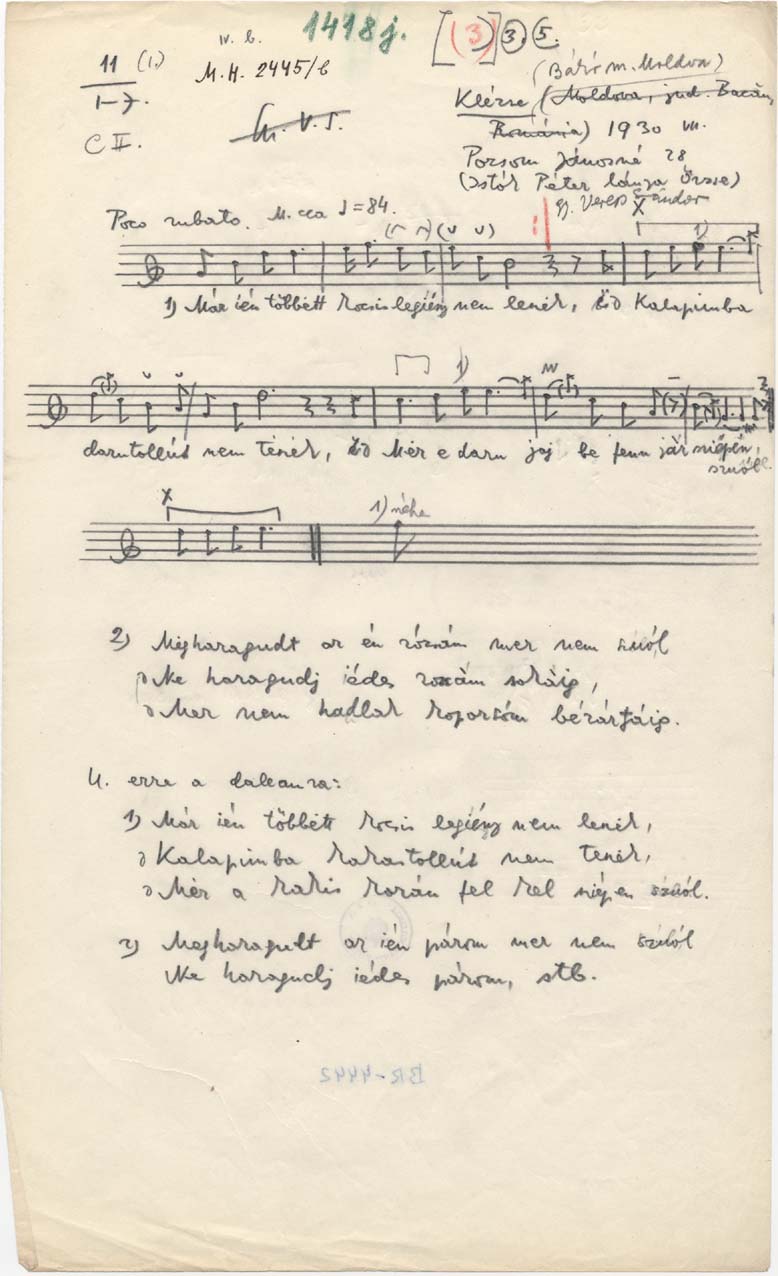 IV. b.
1418j.
[(3)] 3. 5.
11 (1.)
1-7.
C II.
M.H. 2445/b
M.V.T.
(Bákó m. Moldva)
Klézse (Moldova, jud. Bacău,
România) 1930 VII.
Porsom Jánosné 28
(Istók Péter lánya Örzse)
gy. Veress Sándor
Poco rubato. M. cca ♩=84.
X
1)
1) Már ién többétt kocsis legiény nem lenék, Kalapimba
1)
darutollút nem tének, Mér e daru jaj be fenn jár sziépén,
szuól.
X
1) néha
2) Megharagudt az én rózsám mer nem szuól
Ne haragudj iédes rozsám sokáig,
Mer nem hadlak koporsóm bézártáig.
U. erre a dallamra:
1) Már ién többétt kocsis legiény nem lenék,
Kalapimba kakastollút nem tenék,
Mér a kakas korán fel kel szépen szuól.
2) Megharagudt az ién párom mer nem szuól
Ne haragudj iédes párom, stb.
BR-4442